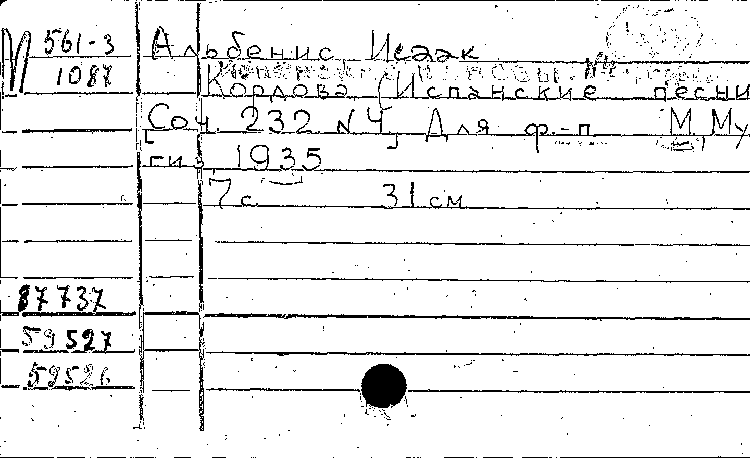 П 561-3 Альбенис Исаак
1087
Кордова (Испанские песни
Соч. 232 N 4, Для ф.-п. М, Му
гиз, 1935
7 с 31 см
87737
59527
59526